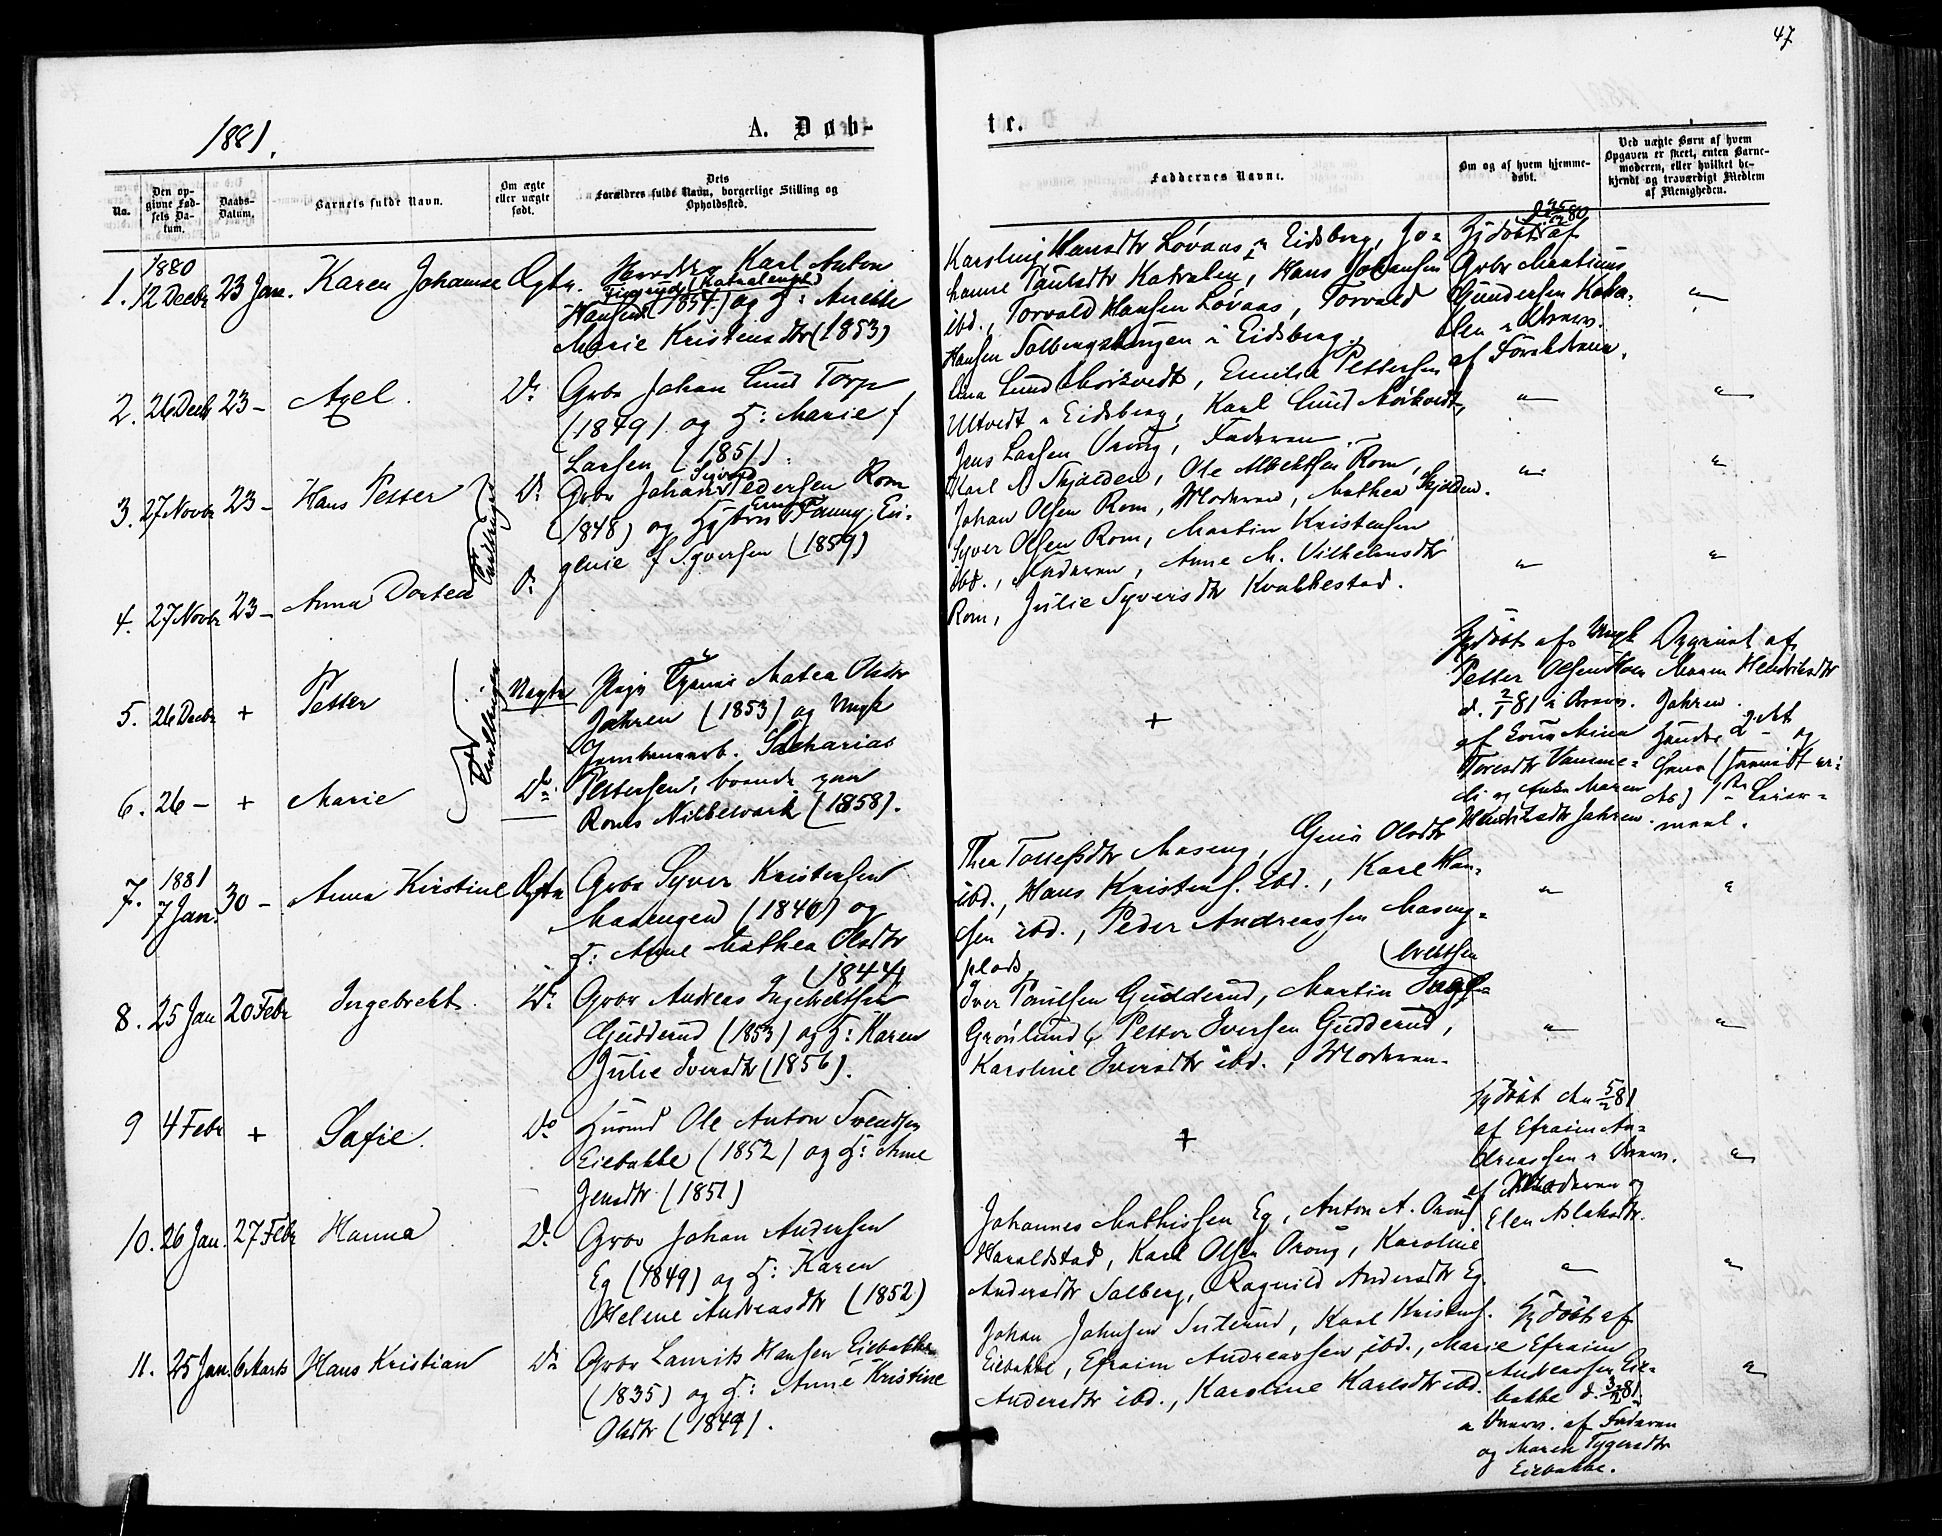 47
1881.
A. Døb-
te.
No.
Den opgivne Fødsels Datum.
Daabs-Datum.
Barnets fulde Navn.
Om ægte eller uægte født.
Dets Forældres fulde Navn, borgerlige Stilling og Opholdssted.
Faddernes Navne.
Om og af hvem hjemmedøbt.
Ved uægte Børn af hvem Opgaven er skeet, enten Barnemoderen, eller hvilket bekjendt og troværdigt Medlem af Menigheden.
1. 1880 12 Decbr 23 Jan. Karen Johanne Ægte.
Karl Anton
Hansen (1854) og H: Anette
Marie Kristensdtr (1853)
Hansdtr Løvaas i Eidsberg, Jo-
hanne Paulsdtr Katralen, Hans Johansen
ibd., Torvald Hansen Løvaas, Torvald
Hansen Solbergskougen i Eidsberg.
Hjdøbt af
Grbr Martinus
Gundersen Katra-
len
af Forældrene.
"
2. 26 Decbr 23 – Axel. Do
Grbr Johan Lund Torp
(1849) og H: Marie f
Larsen (1851).
Lina Lund Mörkvedt, Emilie Pettersen
Ultvedt i Eidsberg, Karl Lund Mörkvedt,
Jens Larsen Vroug, Faderen.
" "
3. 27 Novbr 23 – Hans Petter Do
Tvillinger
Grbr Johan Pedersen Rom
(1848) og Hustru Fanny Eu-
genie f Syversen (1859)
Karl A Skjølden, Ole Albertsen Rom,
Johan Olsen Rom, Moderen, Mathea Skjølden.
" "
4. 27 Novbr 23 – Anna Dortea Do
Syver Olsen Rom, Martin Kristensen
ibd., Faderen, Anne M. Vilhelmsdtr
Rom, Julie Syversdtr Kvakkestad.
" "
5. 26 Decbr + Petter Uægte
Tvillinger
Pige Matea Olsdtr
Jahren (1853) og Ungk
Jernbanearb. Sacharias
+
Hjdøbt af Ungk
Petter Olsen
d. 2/1 81
Opgivet af
Maren Henriksdtr
Jahren.
6. 26 – + Marie Do
Pettersen, boende paa
(1858).
af
og Maren
Henriksdtr Jahren.
Hendes 2det og
1ste Leier-
maal.
7. 1881 7 Jan. 30 – Anna Kirstine Ægte
Grbr Syver Kristensen
Masengen (1840) og
H: Anne Mathea Olsdtr
(1844)
Thea Tollefsdtr Maseng, Olsdtr
ibd., Hans Kristens. ibd., Karl Han-
sen ibd., Peder Andreassen Maseng-
plads
" "
8. 25 Jan 20 Febr Ingebrekt. Do
Grbr Andreas Ingebretsen
Gudderud (1853) og H: Karen
Julie Iversdtr (1856).
Iver Paulsen Gudderud, Martin Inge-
bretsen
Grönlund, Petter Iversen Gudderud,
Karoline Iversdtr ibd., Moderen.
" "
9 4 Febr + Safie. Do
Husmd Ole Anton Svendsen
Eiebakke (1852) og H: Anne
Jensdtr (1851)
+
Hjdøbt den 5/2 81
af Efraim An-
dreassen
af Moderen og
Elen Aslaksdtr.
"
10. 26 Jan. 27 Febr Hanna Do
Grbr Johan Andersen
Eg (1849) og H: Karen
Helene Andreasdtr (1852)
Johannes Mathissen Eg, Anton A.
Haraldstad, Karl Olsen Vroug, Karoline
Andersdtr Solberg, Ragnild Andersdtr Eg.
" "
11. 25 Jan. 6 Marts Hans Kristian Do
Grbr Laurits Hansen Eiebakke
(1835) og H: Anne Kristine
Olsdtr (1849).
Johan Johnsen, Karl Kristens.
Eiebakke, Efraim Andreassen ibd., Marie
Andersdtr ibd., Karoline Karlsdtr ibd.
Hjdøbt af
Efraim
Andreassen Eie-
bakke d. 3/2 81
af Faderen
og Maren
Eiebakke.
"